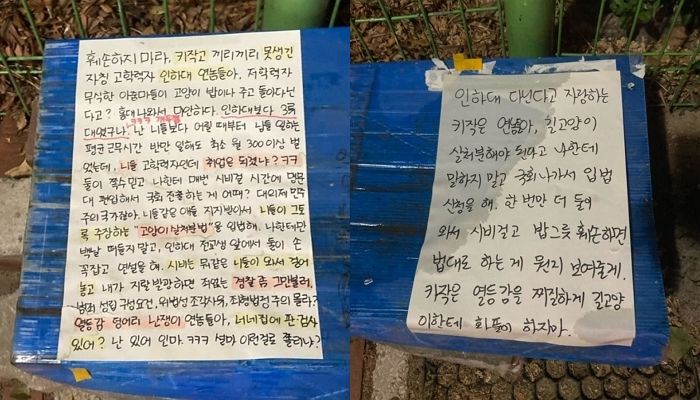 훼손하지 마라, 키작고 끼리끼리 못생긴
자칭 고학력자 인하대 연놈들아. 저학력자
무식한 아줌마들이 고양이 밥이나 주고 돌아다닌
다고? 홍대 나와서 미안하다. 인하대보다 3류
대였구나. ㅋㅋㅋ 난 니들보다 어릴 때부터 남들 일하는
평균 근무시간 반만 일해도 최소 월 300 이상 벌
었는데, 니들 고학력자인데 취업은 되겠냐? ㅋㅋ
둘이 쪽수 믿고 나한테 매번 시비걸 시간에 명문
대 졸업해서 국회 진출하는 게 어때? 대의제 민주
주의 국가잖아. 니들같은 애들 지지받아서 니들이 그토
록 주장하는 "고양이 살처분법"을 입법해. 나한테만
백날 떠들지 말고, 인하대 전교생 앞에서 둘이 손
꼭잡고 연설을 해. 시비는 뭐같은 니들이 와서 걸어
놓고 내가 지랄 발광하면 쳐맞는 경찰 좀 그만불러.
범죄 성립 구성요건, 위법성 조각사유, 죄형법정주의 몰라?
열등감 덩어리 난쟁이 연놈들아, 너네집에 판·검사
있어? 난 있어 인마. ㅋㅋㅋ 설마 이런걸로 쫄리냐?
인하대 다닌다고 자랑하는
키작은 연놈아, 길고양이
살처분해야 된다고 나한테
말하지 말고 국회나가서 입법
신청을 해. 한 번만 더 둘이
와서 시비걸고 밥그릇 훼손하면
법대로 하는 게 뭔지 보여줄게.
키작은 열등감을 찌질하게 길고양
이한테 화풀이 하지마.